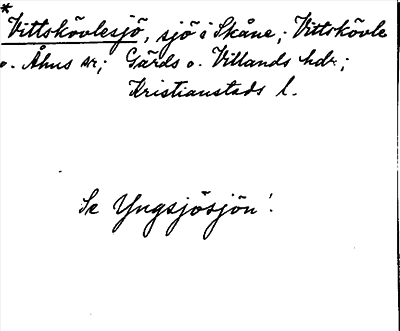 * Vittskövlesjö, sjö i Skåne; Vittskövle
o. Åhus sr; Gärds o. Villands hdr;
Kristianstads l.
Se Yngsjösjön!